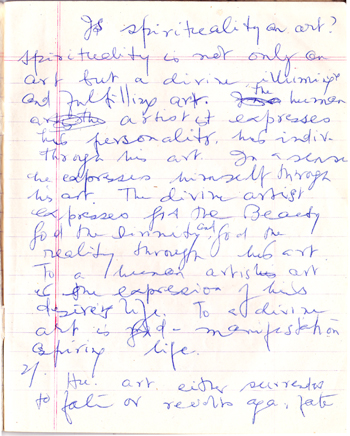 Is spirituality an art?
Spirituality is not only an
art but a divine illumin
and fulfilling art. the human
artist expresses
his personality, his indiv
through his art. In a sense
he expresses himself through
his art. The divine artist
expresses God the Beauty
God the Divinity and God the
reality through his art.
To a human artist his art
is the expression of his
desiring life. To a divine
art is God-manifestation
aspiring life.
2/
Hu. art. either surrenders
to fate or revolts aga. fate